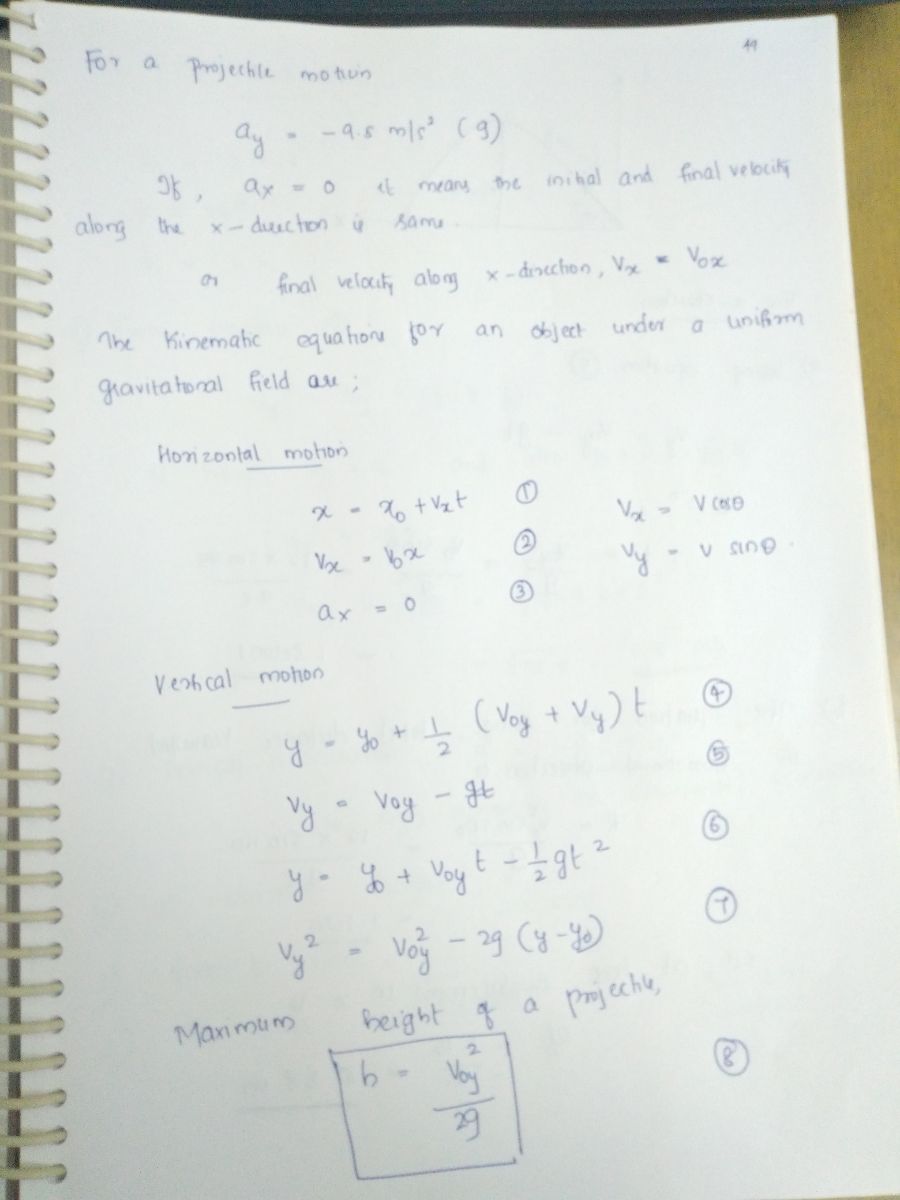 49
For a projectile motion
ay = -9.8 m/s² (g)
If, ax = 0 it means the initial and final velocity
along the x-direction is same.
or final velocity along x-direction, Vx = V0x
The Kinematic equations for an object under a uniform
gravitational field are;
Horizontal motion
x = x0 + Vxt ① Vx = V cosθ
Vx = V0x ② Vy = V sinθ.
ax = 0 ③
Vertical motion
y = y0 + 1/2 (V0y + Vy) t ④
Vy = V0y - gt ⑤
y = y0 + V0y t - 1/2 gt² ⑥
Vy² = V0y² - 2g (y-y0) ⑦
Maximum height of a projectile,
h = V0y²/2g ⑧